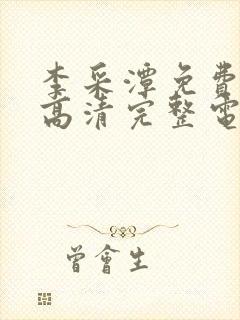 李采潭免費
高清完整電
曾會生